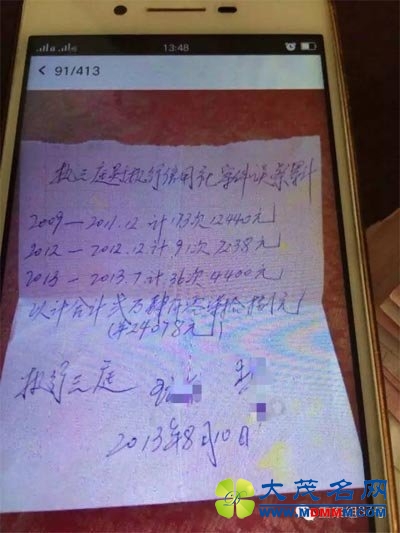 13:48
91/413
执三庭对执行信用社案件误餐累计
2009—2011.12 计173次 12440元
2012—2012.12 计91次 7238元
2013—2013.7 计36次 4400元
以计合计贰万肆仟零柒拾捌元
(¥24078元)
执行三庭
2013年8月10日
大茂名网
WWW.MDMMW.COM